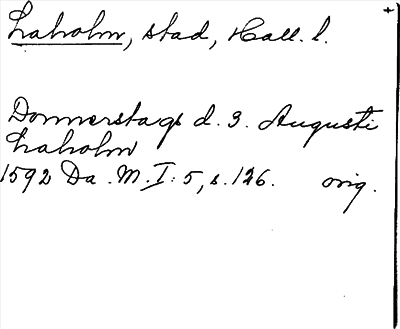 Laholm, stad, Hall. l.
Donnerstags d. 3. Augusti
Laholm
1592 Da. M. I: 5, s. 126. orig.